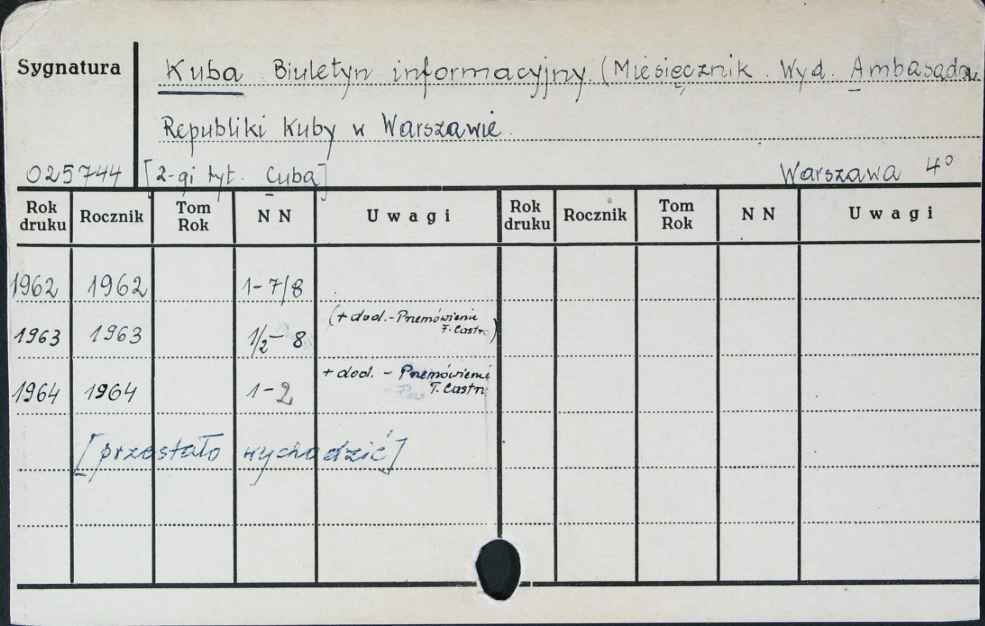 Sygnatura Kuba Biuletyn informacyjny. (Miesięcznik. Wyd. Ambasada
Republiki Kuby w Warszawie.
025744 [2-gi tyt. Cuba] Warszawa 4°
Rok druku Rocznik Tom Rok N N Uwagi Rok druku Rocznik Tom Rok N N Uwagi
1962 1962 1-7/8
1963 1963 1/2-8 (+ dod.-Przemówienie F. Castr.)
1964 1964 1-2 + dod. - Przemówienie F. Castr.
[przestało wychodzić]